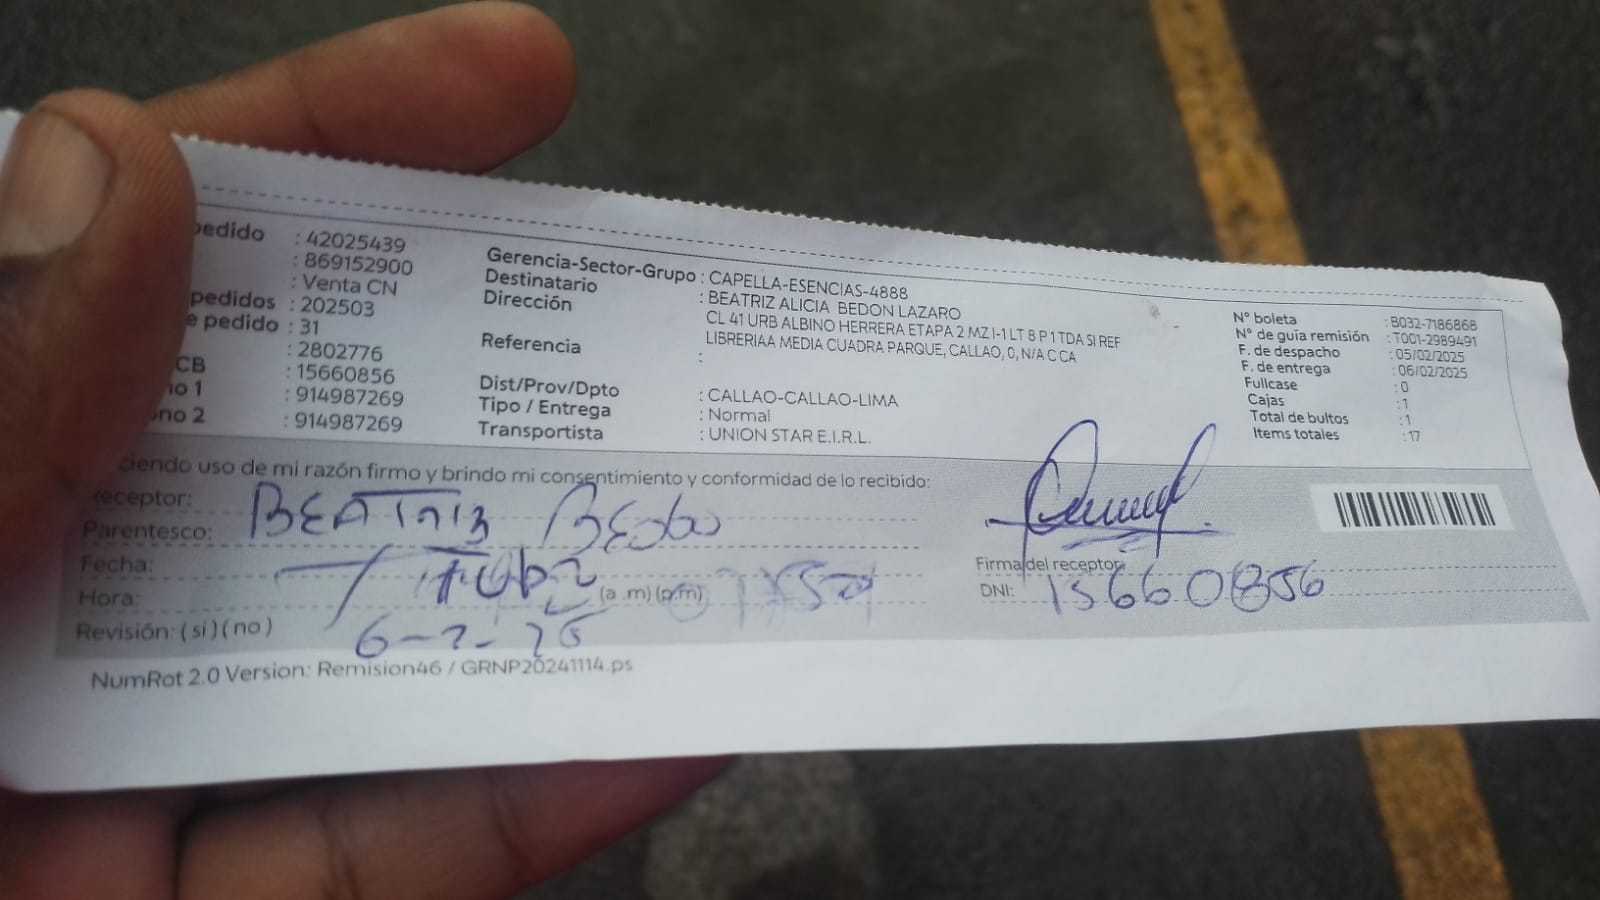 pedido : 42025439
: 869152900
: Venta CN
pedidos : 202503
e pedido : 31
: 2802776
CB : 15660856
no 1 : 914987269
ono 2 : 914987269
Gerencia-Sector-Grupo : CAPELLA-ESENCIAS-4888
Destinatario : BEATRIZ ALICIA BEDON LAZARO
Dirección : CL 41 URB ALBINO HERRERA ETAPA 2 MZ I-1 LT 8 P 1 TDA SI REF
LIBRERIAA MEDIA CUADRA PARQUE, CALLAO, 0, N/A C CA
Referencia :
Dist/Prov/Dpto : CALLAO-CALLAO-LIMA
Tipo / Entrega : Normal
Transportista : UNION STAR E.I.R.L.
N° boleta : B032-7186868
N° de guía remisión : T001-2989491
F. de despacho : 05/02/2025
F. de entrega : 06/02/2025
Fullcase : 0
Cajas : 1
Total de bultos : 1
Items totales : 17
ciendo uso de mi razón firmo y brindo mi consentimiento y conformidad de lo recibido:
receptor: BEATRIZ BEDON
Parentesco:
Fecha:
Hora: (a .m) (p.m)
Revisión: ( si ) ( no ) 6-2-25
Firma del receptor
DNI: 15660856
NumRot 2.0 Version: Remision46 / GRNP20241114.ps